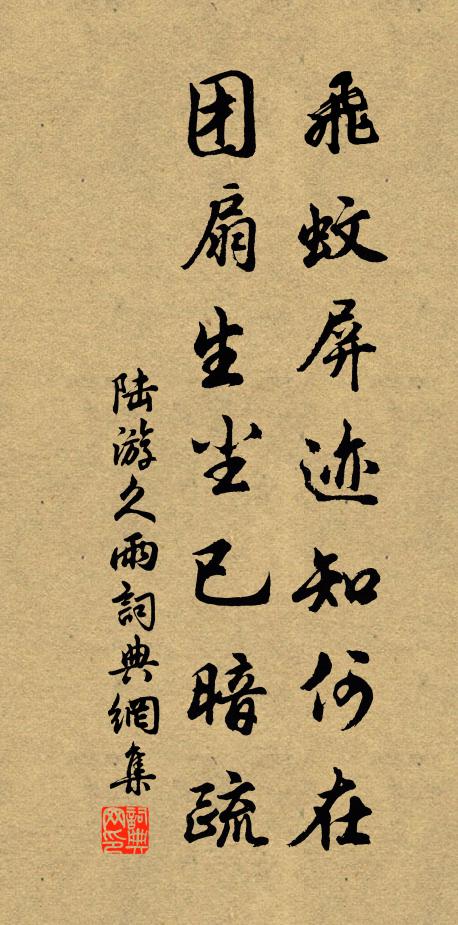 飛蚊屏迹知何在
团扇生尘已暗疏
陆游久雨詞典網集
詞典网印